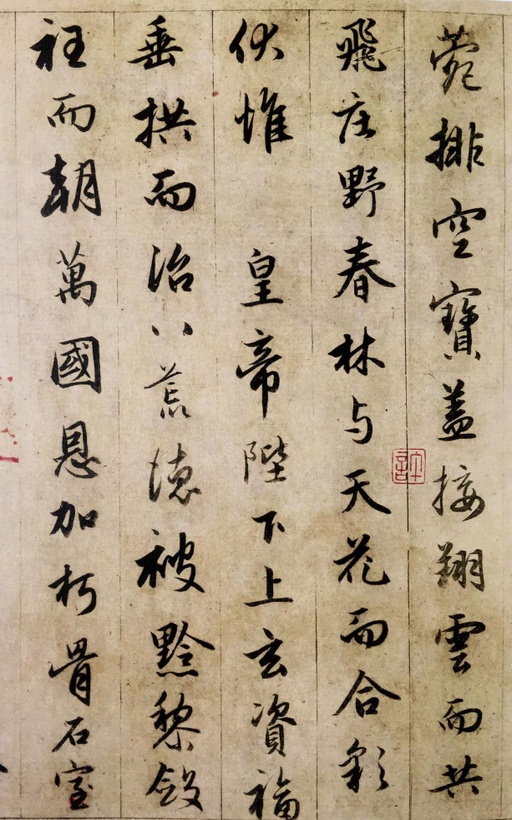 菀排空寶盖接翔雲而共
飛庄野春林与天花而合彩
伏惟 皇帝陛下上玄資福
垂拱而治八荒德被黔黎斂
衽而朝萬國恩加朽骨石室